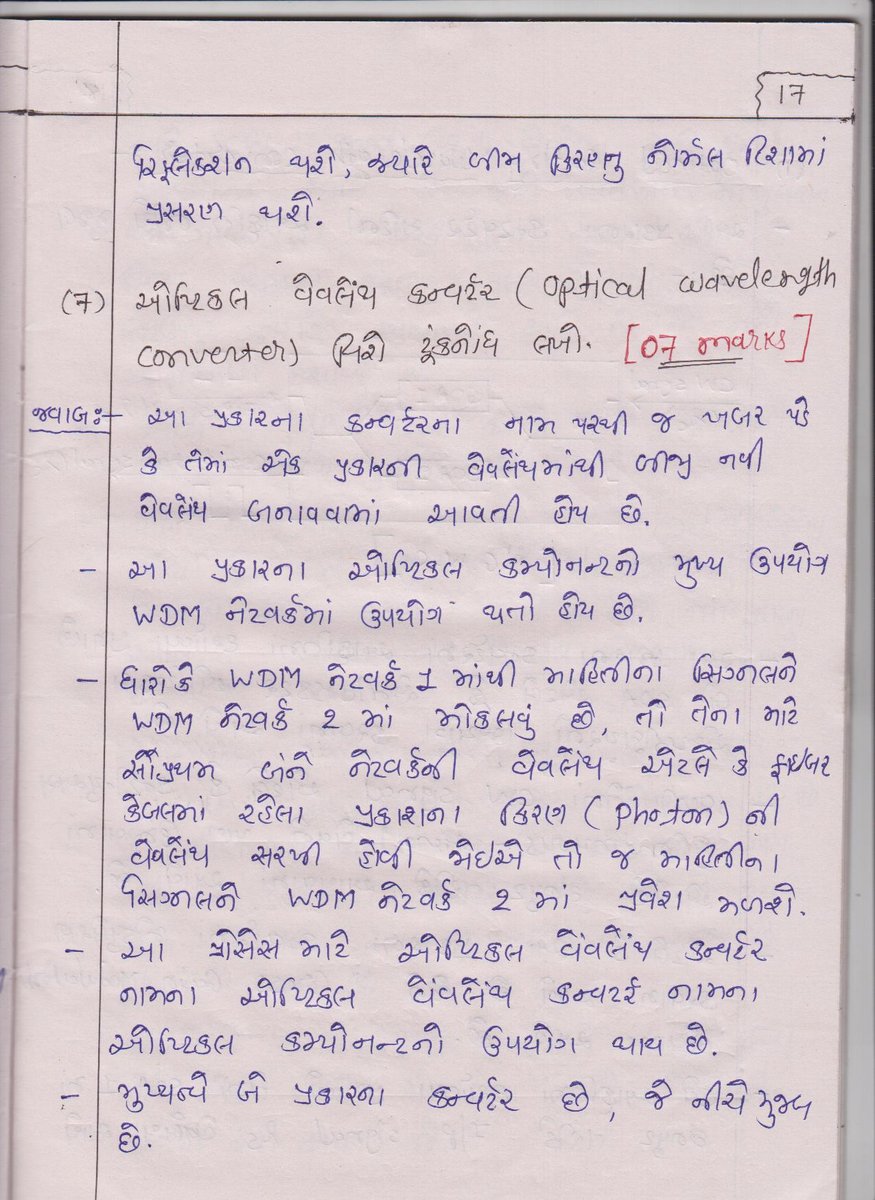 17
રિફ્લેકશન થશે, જ્યારે બીમ કિરણનુ નોર્મલ દિશામાં
પ્રસરણ થશે.
(7) ઓપ્ટિકલ વેવલેંથ કન્વર્ટર (optical wavelength
converter) વિશે ટૂંકનોંધ લખો. [07 marks]
જવાબઃ- આ પ્રકારના કન્વર્ટરના નામ પરથી જ ખબર પડે
કે તેમાં એક પ્રકારની વેવલેંથમાંથી બીજી નવી
વેવલેંથ બનાવવામાં આવતી હોય છે.
- આ પ્રકારના ઓપ્ટિકલ કમ્પોનન્ટનો મુખ્ય ઉપયોગ
WDM નેટવર્કમાં ઉપયોગ થતો હોય છે.
- ધારોકે WDM નેટવર્ક 1 માંથી માહિતીના સિગ્નલને
WDM નેટવર્ક 2 માં મોકલવું છે, તો તેના માટે
સૌપ્રથમ બંને નેટવર્કની વેવલેંથ એટલે કે ફાઇબર
કેબલમાં રહેલા પ્રકાશના કિરણ (photon) ની
વેવલેંથ સરખી હોવી જોઇએ તો જ માહિતીના
સિગ્નલને WDM નેટવર્ક 2 માં પ્રવેશ મળશે.
- આ પ્રોસેસ માટે ઓપ્ટિકલ વેવલેંથ કન્વર્ટર
નામના ઓપ્ટિકલ વેવલેંથ કન્વટર્ર નામના
ઓપ્ટિકલ કમ્પોનન્ટનો ઉપયોગ થાય છે.
- મુખ્યત્વે બે પ્રકારના કન્વર્ટર છે, જે નીચે મુજબ
છે.